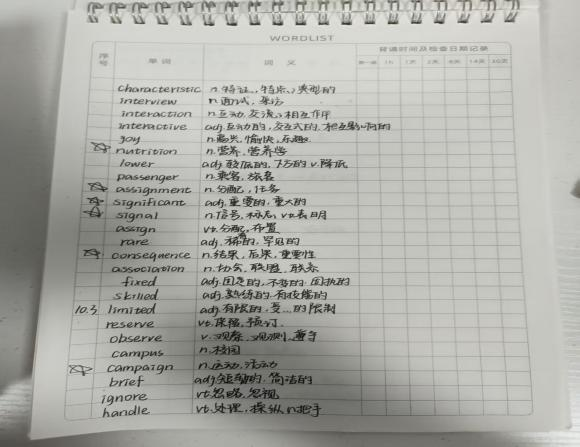 WORDLIST
序号 单词 词义 背诵时间及检查日期记录
第一遍 1h 1天 2天 6天 14天 30天
characteristic n.特征,特点,类型的
interview n.面试,采访
interaction n.互动,交流,相互作用
interactive adj.互动的,交互式的,相互影响的
joy n.高兴,愉快,乐趣
☆ nutrition n.营养,营养学
lower adj.较低的,下方的 v.降低
passenger n.乘客,旅客
☆ assignment n.分配,任务
☆ significant adj.重要的,重大的
☆ signal n.信号,标志 vt.表明
assign vt.分配,布置
rare adj.稀有的,罕见的
☆ consequence n.结果,后果,重要性
association n.协会,联盟,联系
fixed adj.固定的,不变的,固执的
skilled adj.熟练的,有技能的
10.3 limited adj.有限的,受...的限制
reserve vt.保留,预订
observe v.观察,观测,遵守
campus n.校园
☆ campaign n.运动,活动
brief adj.短暂的,简洁的
ignore vt.忽略,忽视
handle vt.处理,操纵 n.把手